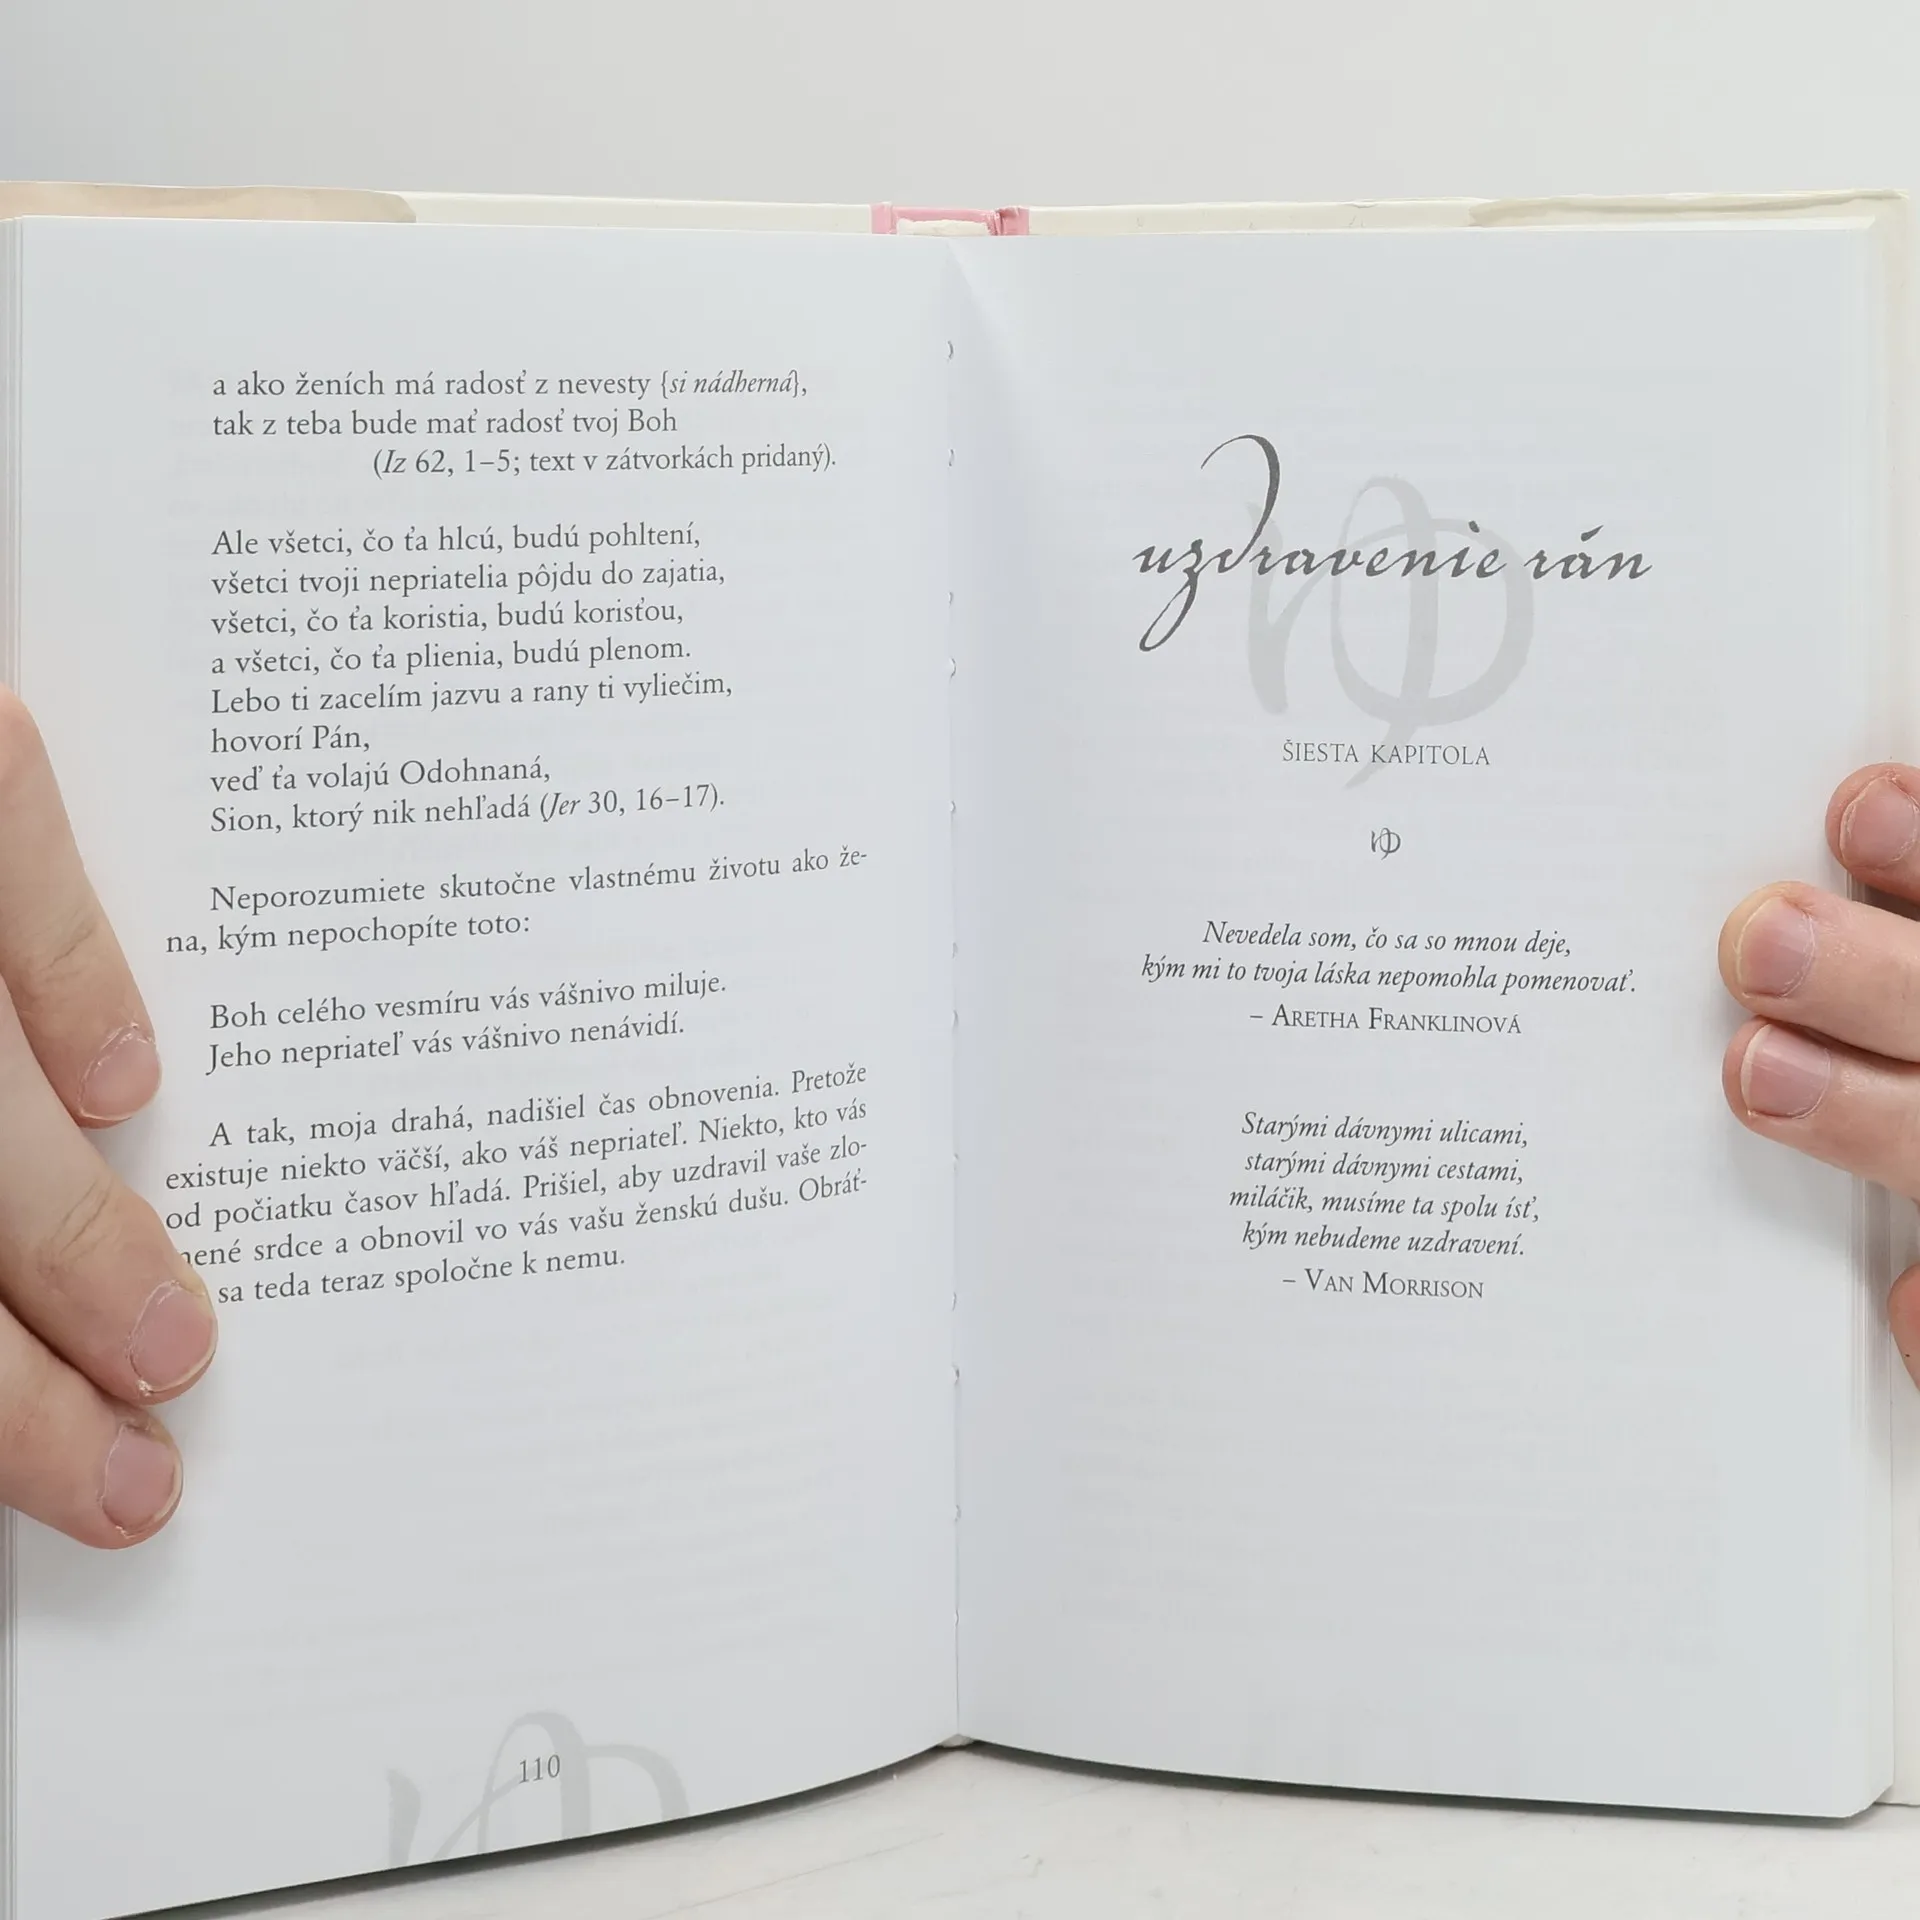 a ako ženích má radosť z nevesty {si nádherná},
tak z teba bude mať radosť tvoj Boh
(Iz 62, 1–5; text v zátvorkách pridaný).
Ale všetci, čo ťa hlcú, budú pohltení,
všetci tvoji nepriatelia pôjdu do zajatia,
všetci, čo ťa koristia, budú korisťou,
a všetci, čo ťa plienia, budú plenom.
Lebo ti zacelím jazvu a rany ti vyliečim,
hovorí Pán,
veď ťa volajú Odohnaná,
Sion, ktorý nik nehľadá (Jer 30, 16–17).
Neporozumiete skutočne vlastnému životu ako že-
na, kým nepochopíte toto:
Boh celého vesmíru vás vášnivo miluje.
Jeho nepriateľ vás vášnivo nenávidí.
A tak, moja drahá, nadišiel čas obnovenia. Pretože
existuje niekto väčší, ako váš nepriateľ. Niekto, kto vás
od počiatku časov hľadá. Prišiel, aby uzdravil vaše zlo-
mené srdce a obnovil vo vás vašu ženskú dušu. Obráť-
sa teda teraz spoločne k nemu.
110
uzdravenie rán
ŠIESTA KAPITOLA
Nevedela som, čo sa so mnou deje,
kým mi to tvoja láska nepomohla pomenovať.
– ARETHA FRANKLINOVÁ
Starými dávnymi ulicami,
starými dávnymi cestami,
miláčik, musíme ta spolu ísť,
kým nebudeme uzdravení.
– VAN MORRISON